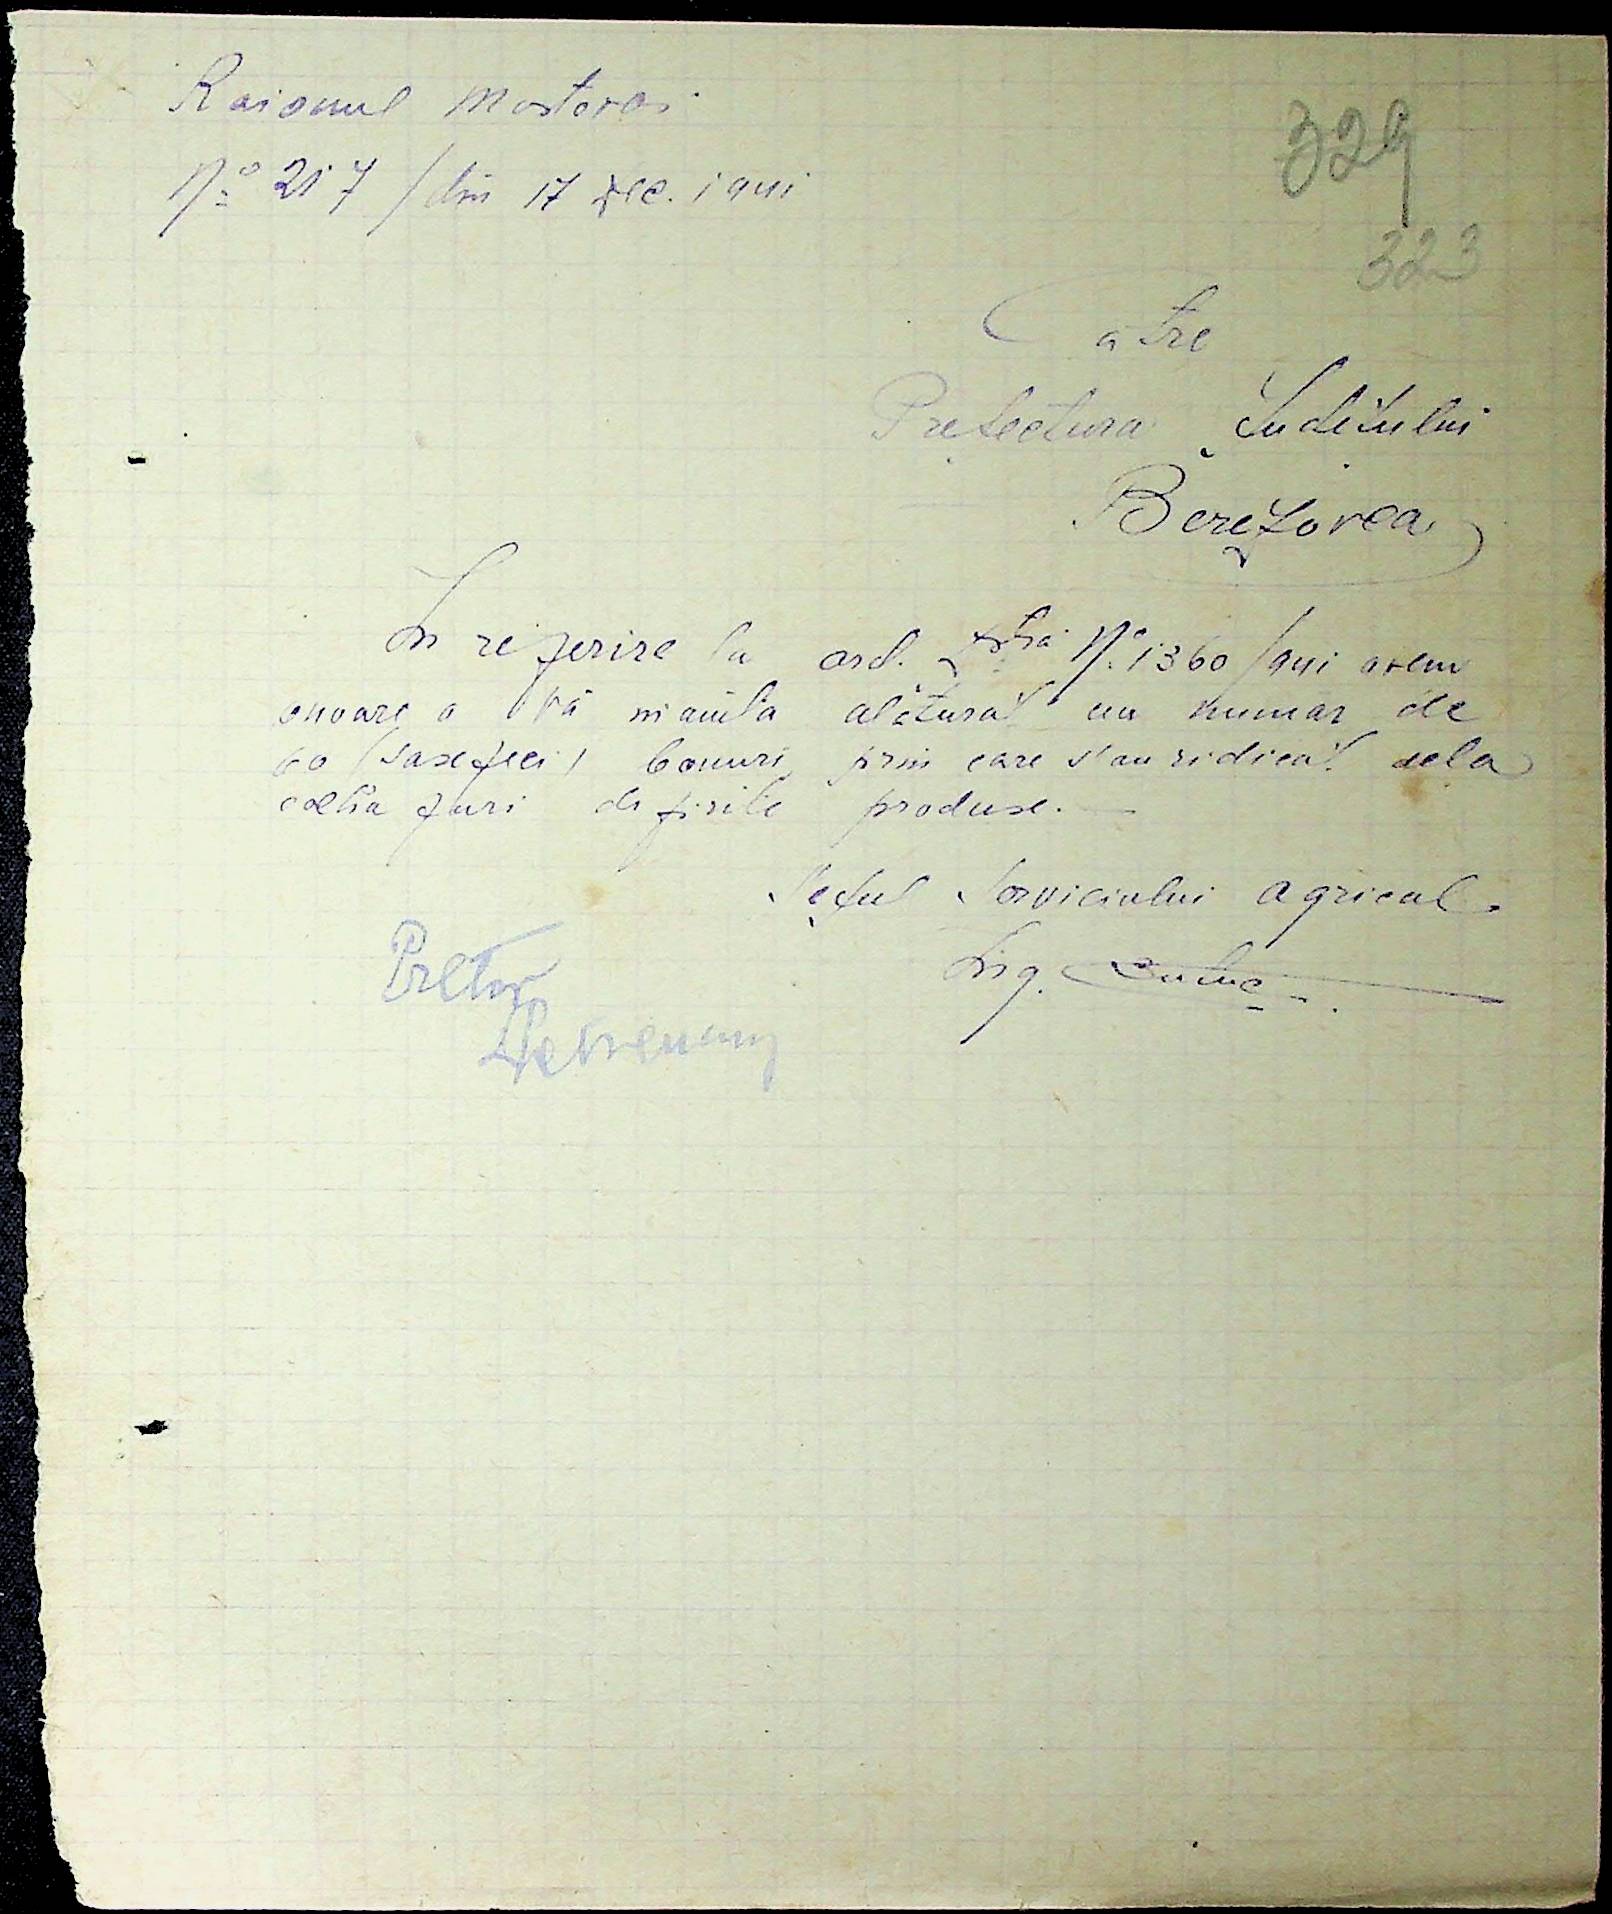 Raionul Mostovoi
No 217 / din 17 Dec. 1941
329
323
Catre
Prefectura Judetului
Berezovca
In referire la ord. Dstră No 1360/941 avem
onoare a vă mainta alăturat un numar de
60 (sasezeci) bonuri prin care s'au ridicat dela
colhozuri diferite produse. —
Șeful Serviciului Agricol.
Ing.
Pretor